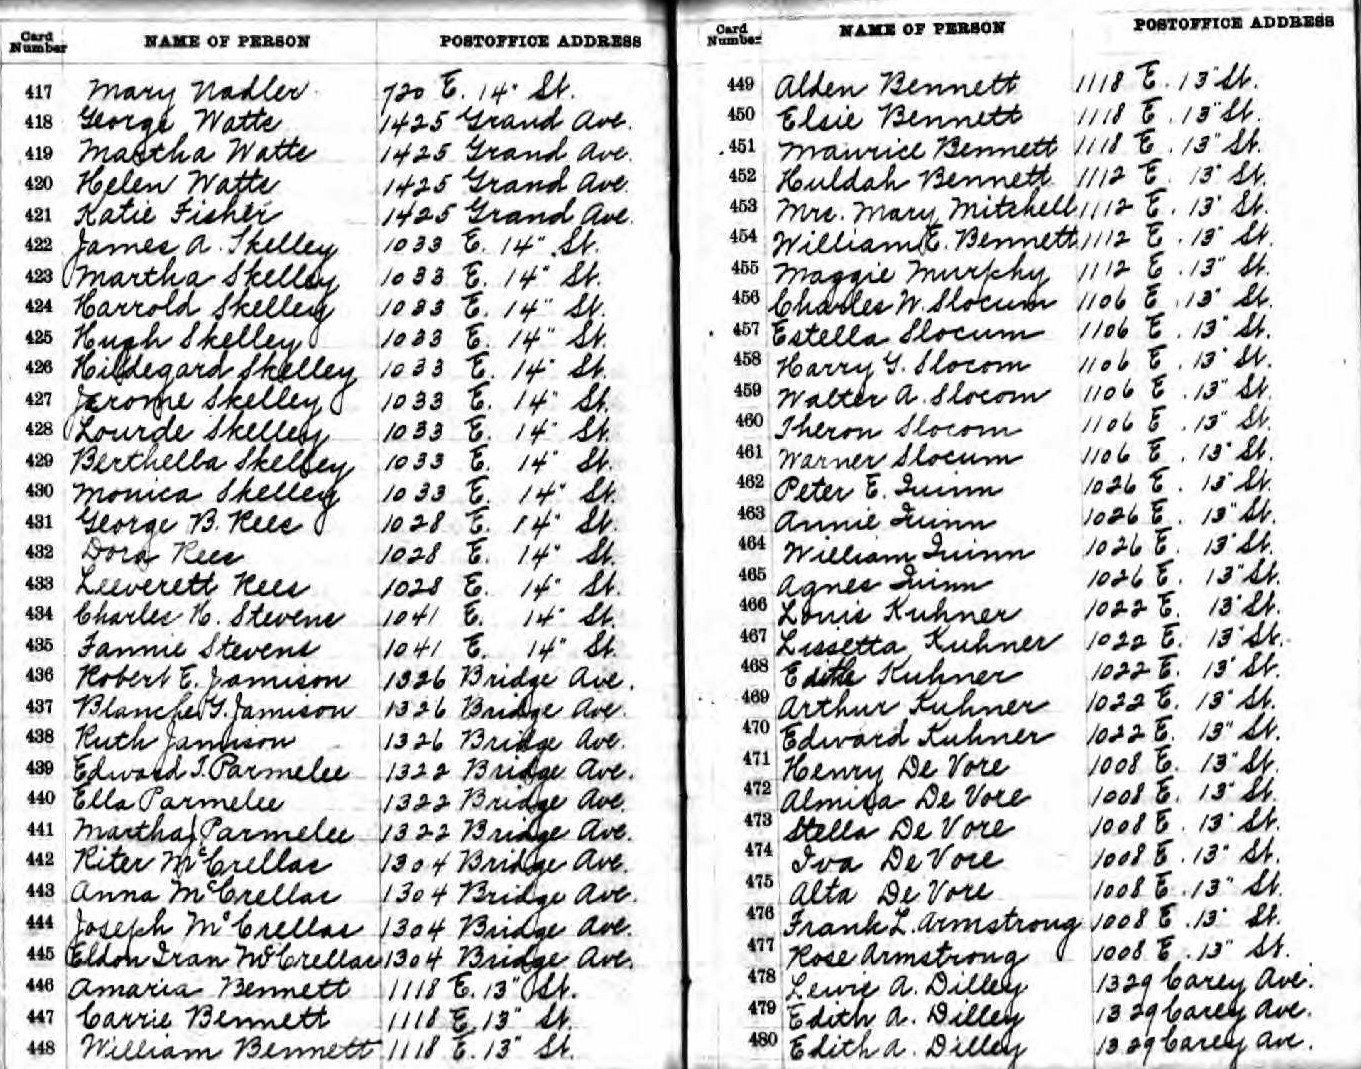 Card Number NAME OF PERSON POSTOFFICE ADDRESS
417 Mary Nadler 720 E. 14" St.
418 George Watts 1425 Grand Ave.
419 Martha Watts 1425 Grand Ave.
420 Helen Watts 1425 Grand Ave.
421 Katie Fisher 1425 Grand Ave.
422 James A. Skelley 1033 E. 14" St.
423 Martha Skelley 1033 E. 14" St.
424 Harrold Skelley 1033 E. 14" St.
425 Hugh Skelley 1033 E. 14" St.
426 Hildegard Skelley 1033 E. 14" St.
427 Jerome Skelley 1033 E. 14" St.
428 Lourde Skelley 1033 E. 14" St.
429 Berthella Skelley 1033 E. 14" St.
430 Monica Skelley 1033 E. 14" St.
431 George B. Rees 1028 E. 14" St.
432 Dora Rees 1028 E. 14" St.
433 Leeverett Rees 1028 E. 14" St.
434 Charles H. Stevens 1041 E. 14" St.
435 Fannie Stevens 1041 E. 14" St.
436 Robert E. Jamison 1326 Bridge Ave.
437 Blanche G. Jamison 1326 Bridge Ave.
438 Ruth Jamison 1326 Bridge Ave.
439 Edward T. Parmelee 1322 Bridge Ave.
440 Ella Parmelee 1322 Bridge Ave.
441 Martha J Parmelee 1322 Bridge Ave.
442 Riter McCrellas 1304 Bridge Ave.
443 Anna McCrellas 1304 Bridge Ave.
444 Joseph McCrellas 1304 Bridge Ave.
445 Eldon Iran McCrellas 1304 Bridge Ave.
446 Amaria Bennett 1118 E. 13" St.
447 Carrie Bennett 1118 E. 13" St.
448 William Bennett 1118 E. 13" St.
Card Number NAME OF PERSON POSTOFFICE ADDRESS
449 Alden Bennett 1118 E. 13" St.
450 Elsie Bennett 1118 E. 13" St.
451 Maurice Bennett 1118 E. 13" St.
452 Huldah Bennett 1112 E. 13" St.
453 Mrs. Mary Mitchell 1112 E. 13" St.
454 William E. Bennett 1112 E. 13" St.
455 Maggie Murphy 1112 E. 13" St.
456 Charles W. Slocum 1106 E. 13" St.
457 Estella Slocum 1106 E. 13" St.
458 Harry G. Slocom 1106 E. 13" St.
459 Walter A. Slocom 1106 E. 13" St.
460 Theron Slocom 1106 E. 13" St.
461 Warner Slocum 1106 E. 13" St.
462 Peter E. Quinn 1026 E. 13" St.
463 Annie Quinn 1026 E. 13" St.
464 William Quinn 1026 E. 13" St.
465 Agnes Quinn 1026 E. 13" St.
466 Louis Kuhner 1022 E. 13" St.
467 Lissetta Kuhner 1022 E. 13" St.
468 Edithe Kuhner 1022 E. 13" St.
469 Arthur Kuhner 1022 E. 13" St.
470 Edward Kuhner 1022 E. 13" St.
471 Henry De Vore 1008 E. 13" St.
472 Almira De Vore 1008 E. 13" St.
473 Stella De Vore 1008 E. 13" St.
474 Iva De Vore 1008 E. 13" St.
475 Alta De Vore 1008 E. 13" St.
476 Frank L. Armstrong 1008 E. 13" St.
477 Rose Armstrong 1008 E. 13" St.
478 Lewis A. Dilley 1329 Carey Ave.
479 Edith A. Dilley 1329 Carey Ave.
480 Edith A. Dilley 1329 Carey Ave.